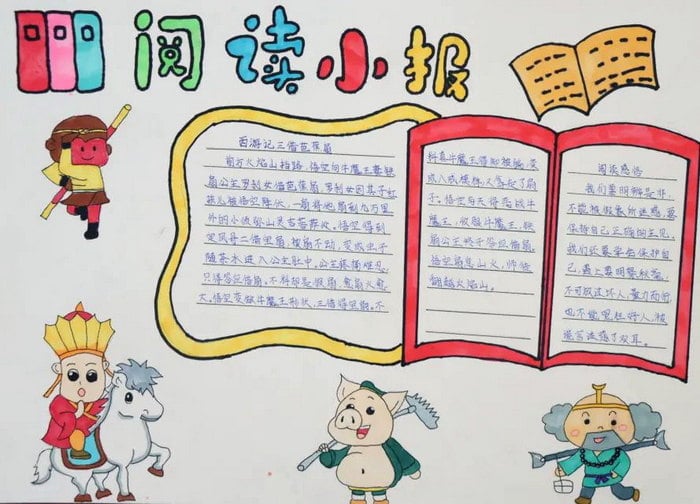 阅读小报
西游记三借芭蕉扇
前方火焰山挡路,悟空向牛魔王妻铁
扇公主罗刹女借芭蕉扇,罗刹女因其子红
孩儿被悟空降伏,一扇将他扇到九万里
外的小须弥山灵吉菩萨处。悟空得到
定风丹二借宝扇,扇不动,变成虫子
随茶水进入公主肚中,公主疼痛难忍,
只得答应借扇。不料却是假扇,愈扇火愈
大。悟空变做牛魔王形状,三借得宝扇。不
料真牛魔王得知被骗,变
成八戒模样,又骗走了扇
子。悟空与天将合战牛
魔王,收服牛魔王,铁
扇公主终于答应借扇。
悟空扇息山火,师徒
翻越火焰山。
阅读感悟
我们要明辨是非,
不能被假象所迷惑,要
保持自己正确的主见,
我们还要学会保护自
己,遇上要明整秋毫,
不可放过坏人,
也不能冤枉好人,被
谎言迷惑了双耳。